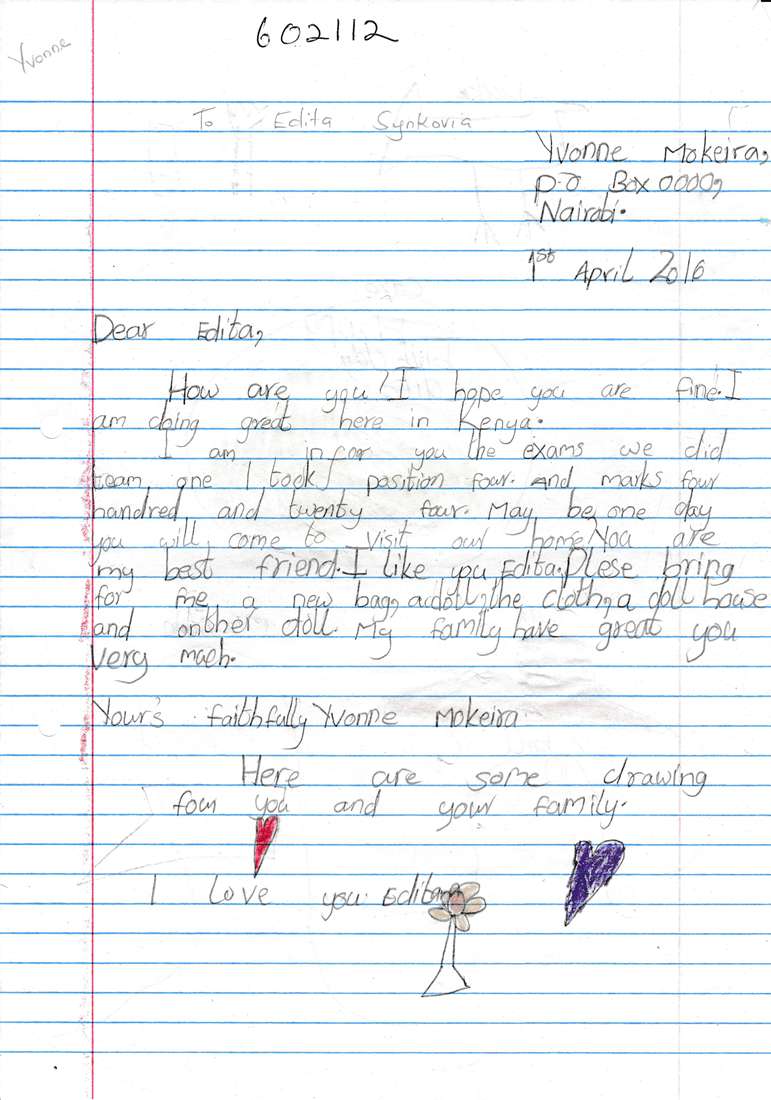 602112
Yvonne
To Edita Synkovia
Yvonne Mokeira,
P.O Box 0000,
Nairobi.
1st April 2016
Dear Edita,
How are you? I hope you are fine. I
am doing great here in Kenya.
I am infor you the exams we did
team one I took position four. And marks four
handred and twenty four. May be one day
you will come to visit our home. You are
my best friend. I like you Edita. Plese bring
for me a new bag, a doll, the cloth, a doll house
and onther doll. My family have great you
very mach.
Your's faithfully Yvonne Mokeira
Here are some drawing
four you and your family.
I love you Edita